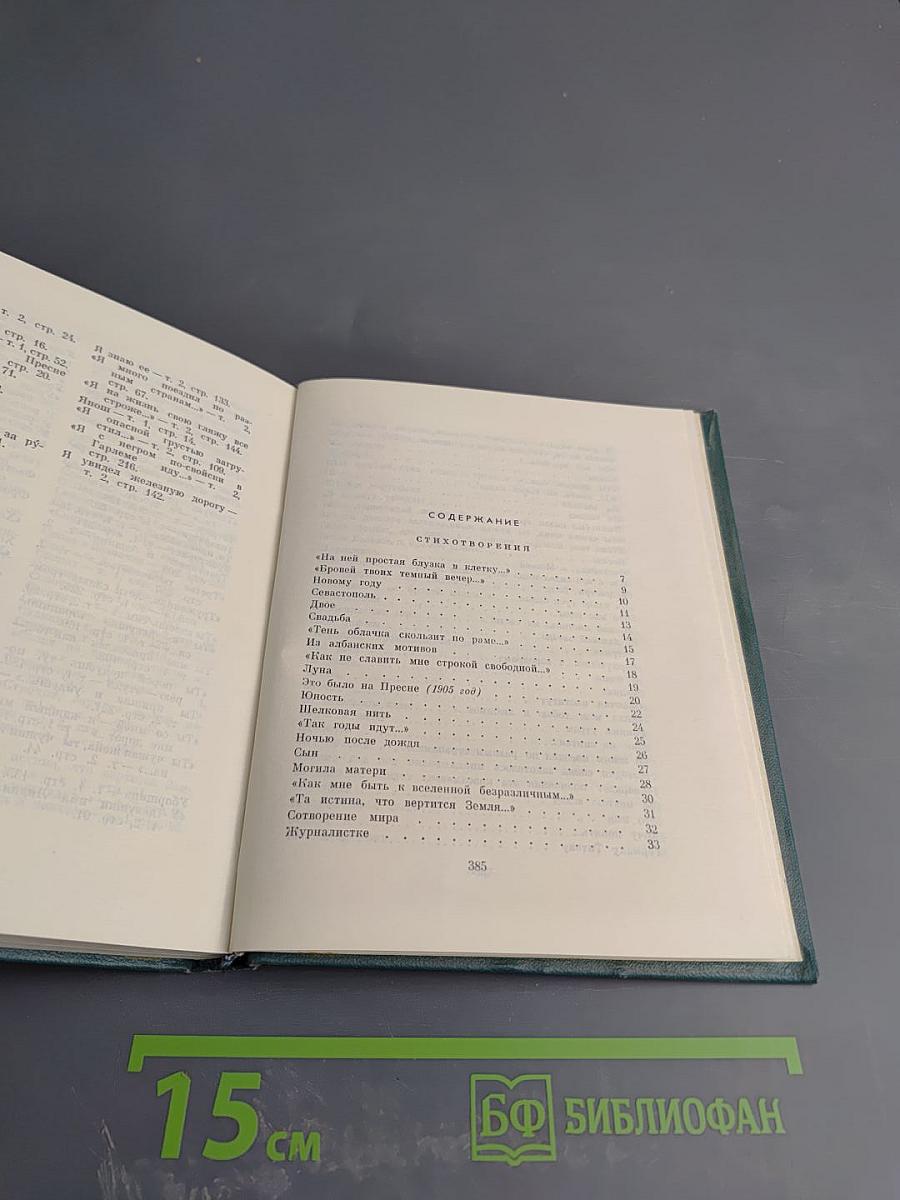 т. 2, стр. 24.
стр. 16.
т. 1, стр. 52.
Пресне
стр. 20.
71.
за ру-
Я знаю ее — т. 2, стр. 133.
«Я много поездил по раз-
ным странам...» — т. 2,
стр. 67.
«Я на жизнь свою гляжу все
строже...» — т. 2, стр. 144.
Янош — т. 1, стр. 14.
«Я опасной грустью загру-
стил...» — т. 2, стр. 109.
«Я с негром по-свойски в
Гарлеме иду...» — т. 2,
стр. 216.
Я увидел железную дорогу —
т. 2, стр. 142.
СОДЕРЖАНИЕ
СТИХОТВОРЕНИЯ
«На ней простая блузка в клетку...» . . . . . . . 7
«Бровей твоих темный вечер...» . . . . . . . . 9
Новому году . . . . . . . . . . . . . . 10
Севастополь . . . . . . . . . . . . . . 11
Двое . . . . . . . . . . . . . . . . 13
Свадьба . . . . . . . . . . . . . . . 14
«Тень облачка скользит по раме...» . . . . . . . 15
Из албанских мотивов . . . . . . . . . . . 17
«Как не славить мне строкой свободной...» . . . . 18
Луна . . . . . . . . . . . . . . . . 19
Это было на Пресне (1905 год) . . . . . . . . 20
Юность . . . . . . . . . . . . . . . 22
Шелковая нить . . . . . . . . . . . . . 24
«Так годы идут...» . . . . . . . . . . . . 25
Ночью после дождя . . . . . . . . . . . . 26
Сын . . . . . . . . . . . . . . . . 27
Могила матери . . . . . . . . . . . . . 28
«Как мне быть к вселенной безразличным...» . . . . 30
«Та истина, что вертится Земля...» . . . . . . . 31
Сотворение мира . . . . . . . . . . . . . 32
Журналистке . . . . . . . . . . . . . . 33
385
15 см
БФ БИБЛИОФАН